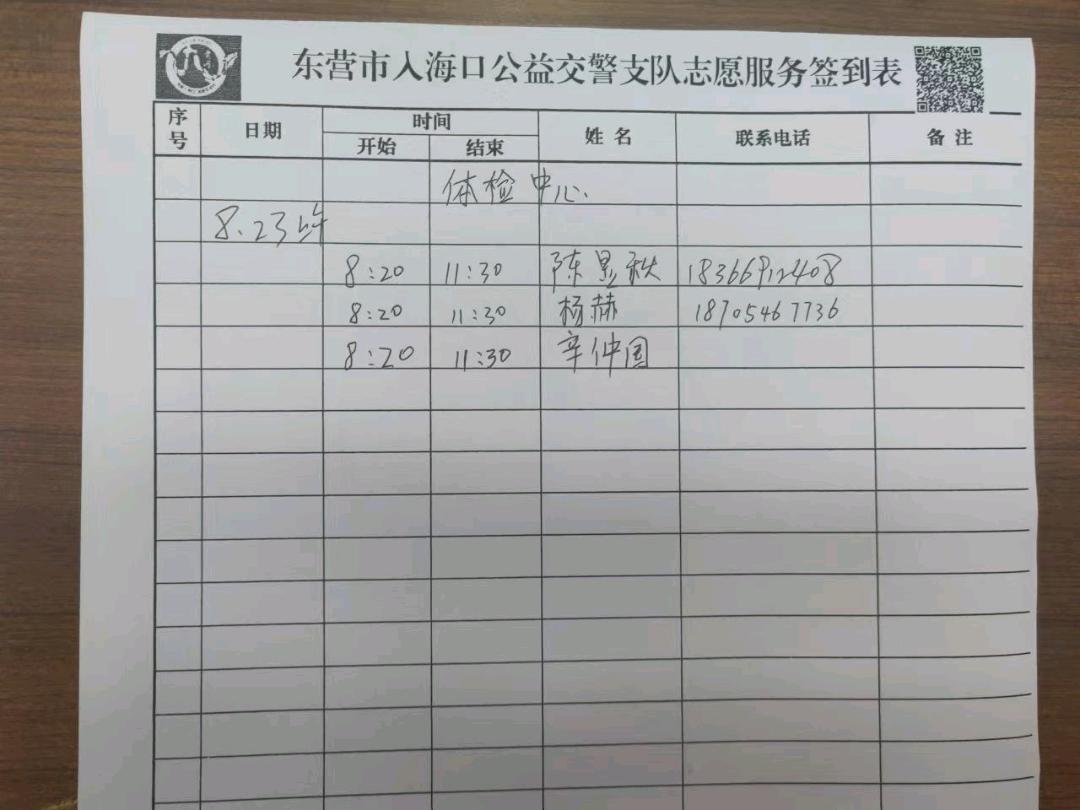 东营市入海口公益交警支队志愿服务签到表
序号 日期 时间 姓名 联系电话 备注
开始 结束
体检中心
8.23上午
8:20 11:30 陈昱秩 18366912408
8:20 11:30 杨赫 18705467736
8:20 11:30 辛仲国